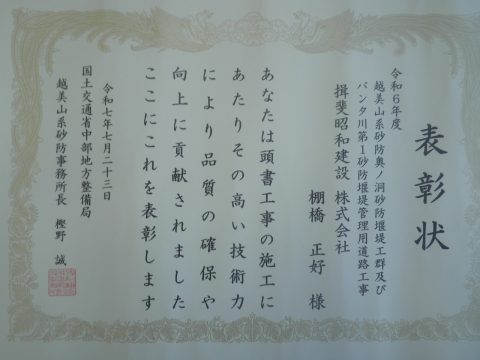 表彰状
令和６年度
越美山系砂防奥ノ洞砂防堰堤工群及び
バンタ川第１砂防堰堤管理用道路工事
揖斐昭和建設 株式会社
棚橋 正好 様
あなたは頭書工事の施工に
あたりその高い技術力
により品質の確保や
向上に貢献されました
ここにこれを表彰します
令和七年七月二十三日
国土交通省中部地方整備局
越美山系砂防事務所長 樫野 誠